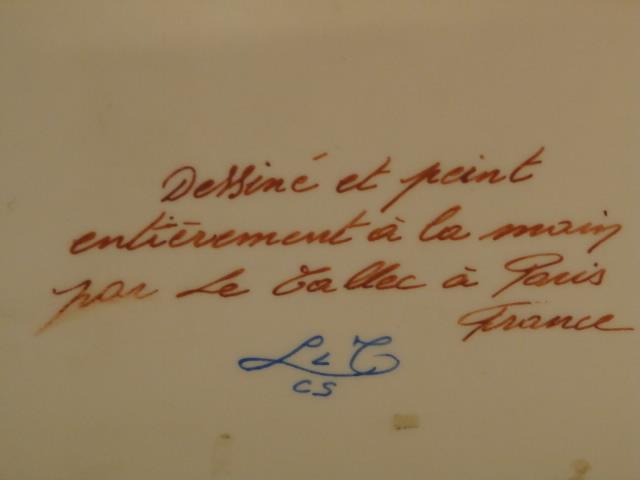 Dessiné et peint
entièrement à la main
par Le Tallec à Paris
France
L L T
CS